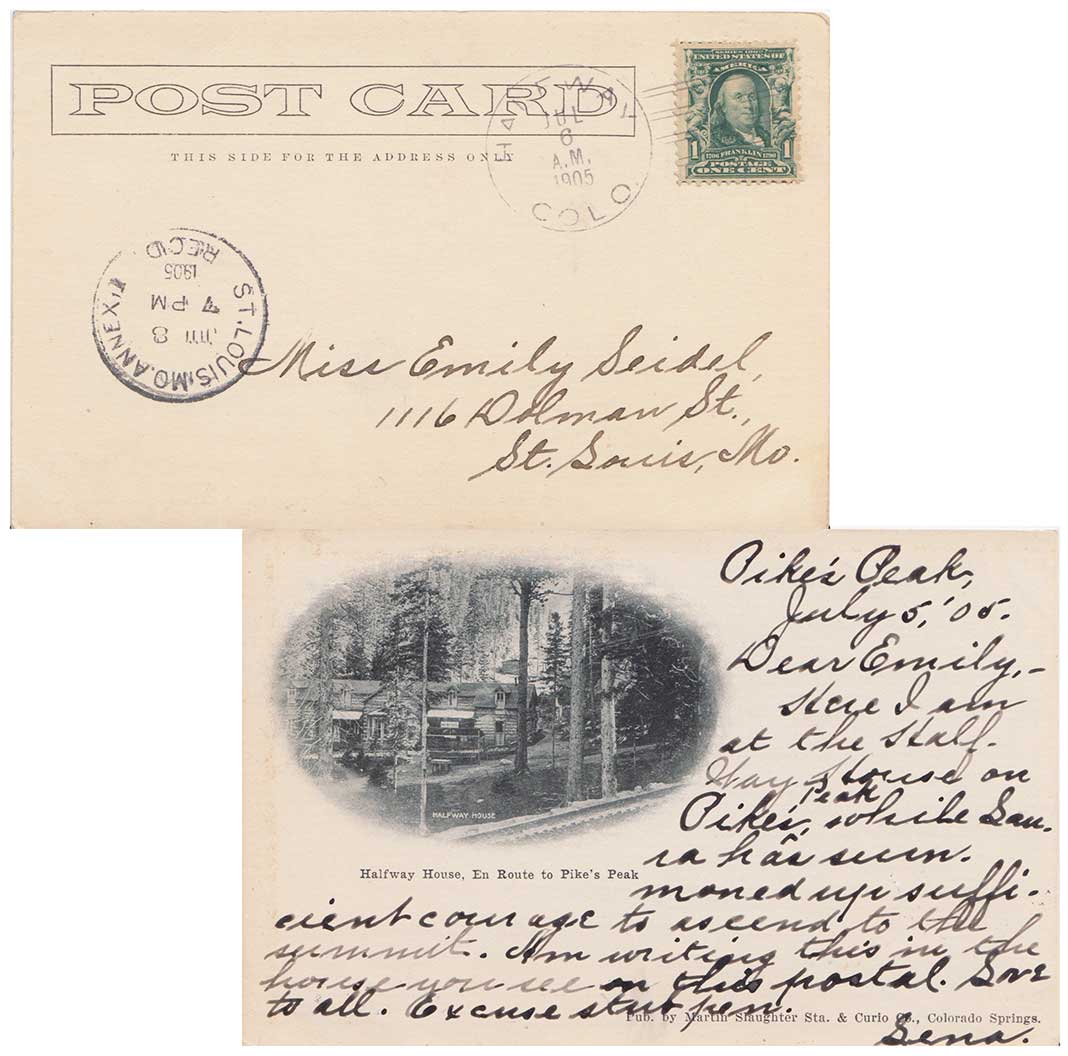 POST CARD
THIS SIDE FOR THE ADDRESS ONLY
HALFWAY
JUL
6
A.M.
1905
COLO.
SERIES 1902
UNITED STATES OF
AMERICA
1 1
1706 FRANKLIN 1790
POSTAGE
ONE CENT
ST. LOUIS, MO. ANNEX, 1
JUL 8
7 PM
1905
REC'D
Miss Emily Seidel,
1116 Dolman St.,
St. Louis, Mo.
Pike's Peak,
July 5, '05.
Dear Emily,-
Here I am
at the Half-
Way House on
Pike's Peak, while Lau-
ra has sum-
moned up suffi-
cient courage to ascend to the
summit. Am writing this in the
house you see on this postal. Love
to all. Excuse stub pen.
Lena.
HALFWAY HOUSE
Halfway House, En Route to Pike's Peak
Pub. by Martin Slaughter Sta. & Curio Co., Colorado Springs.